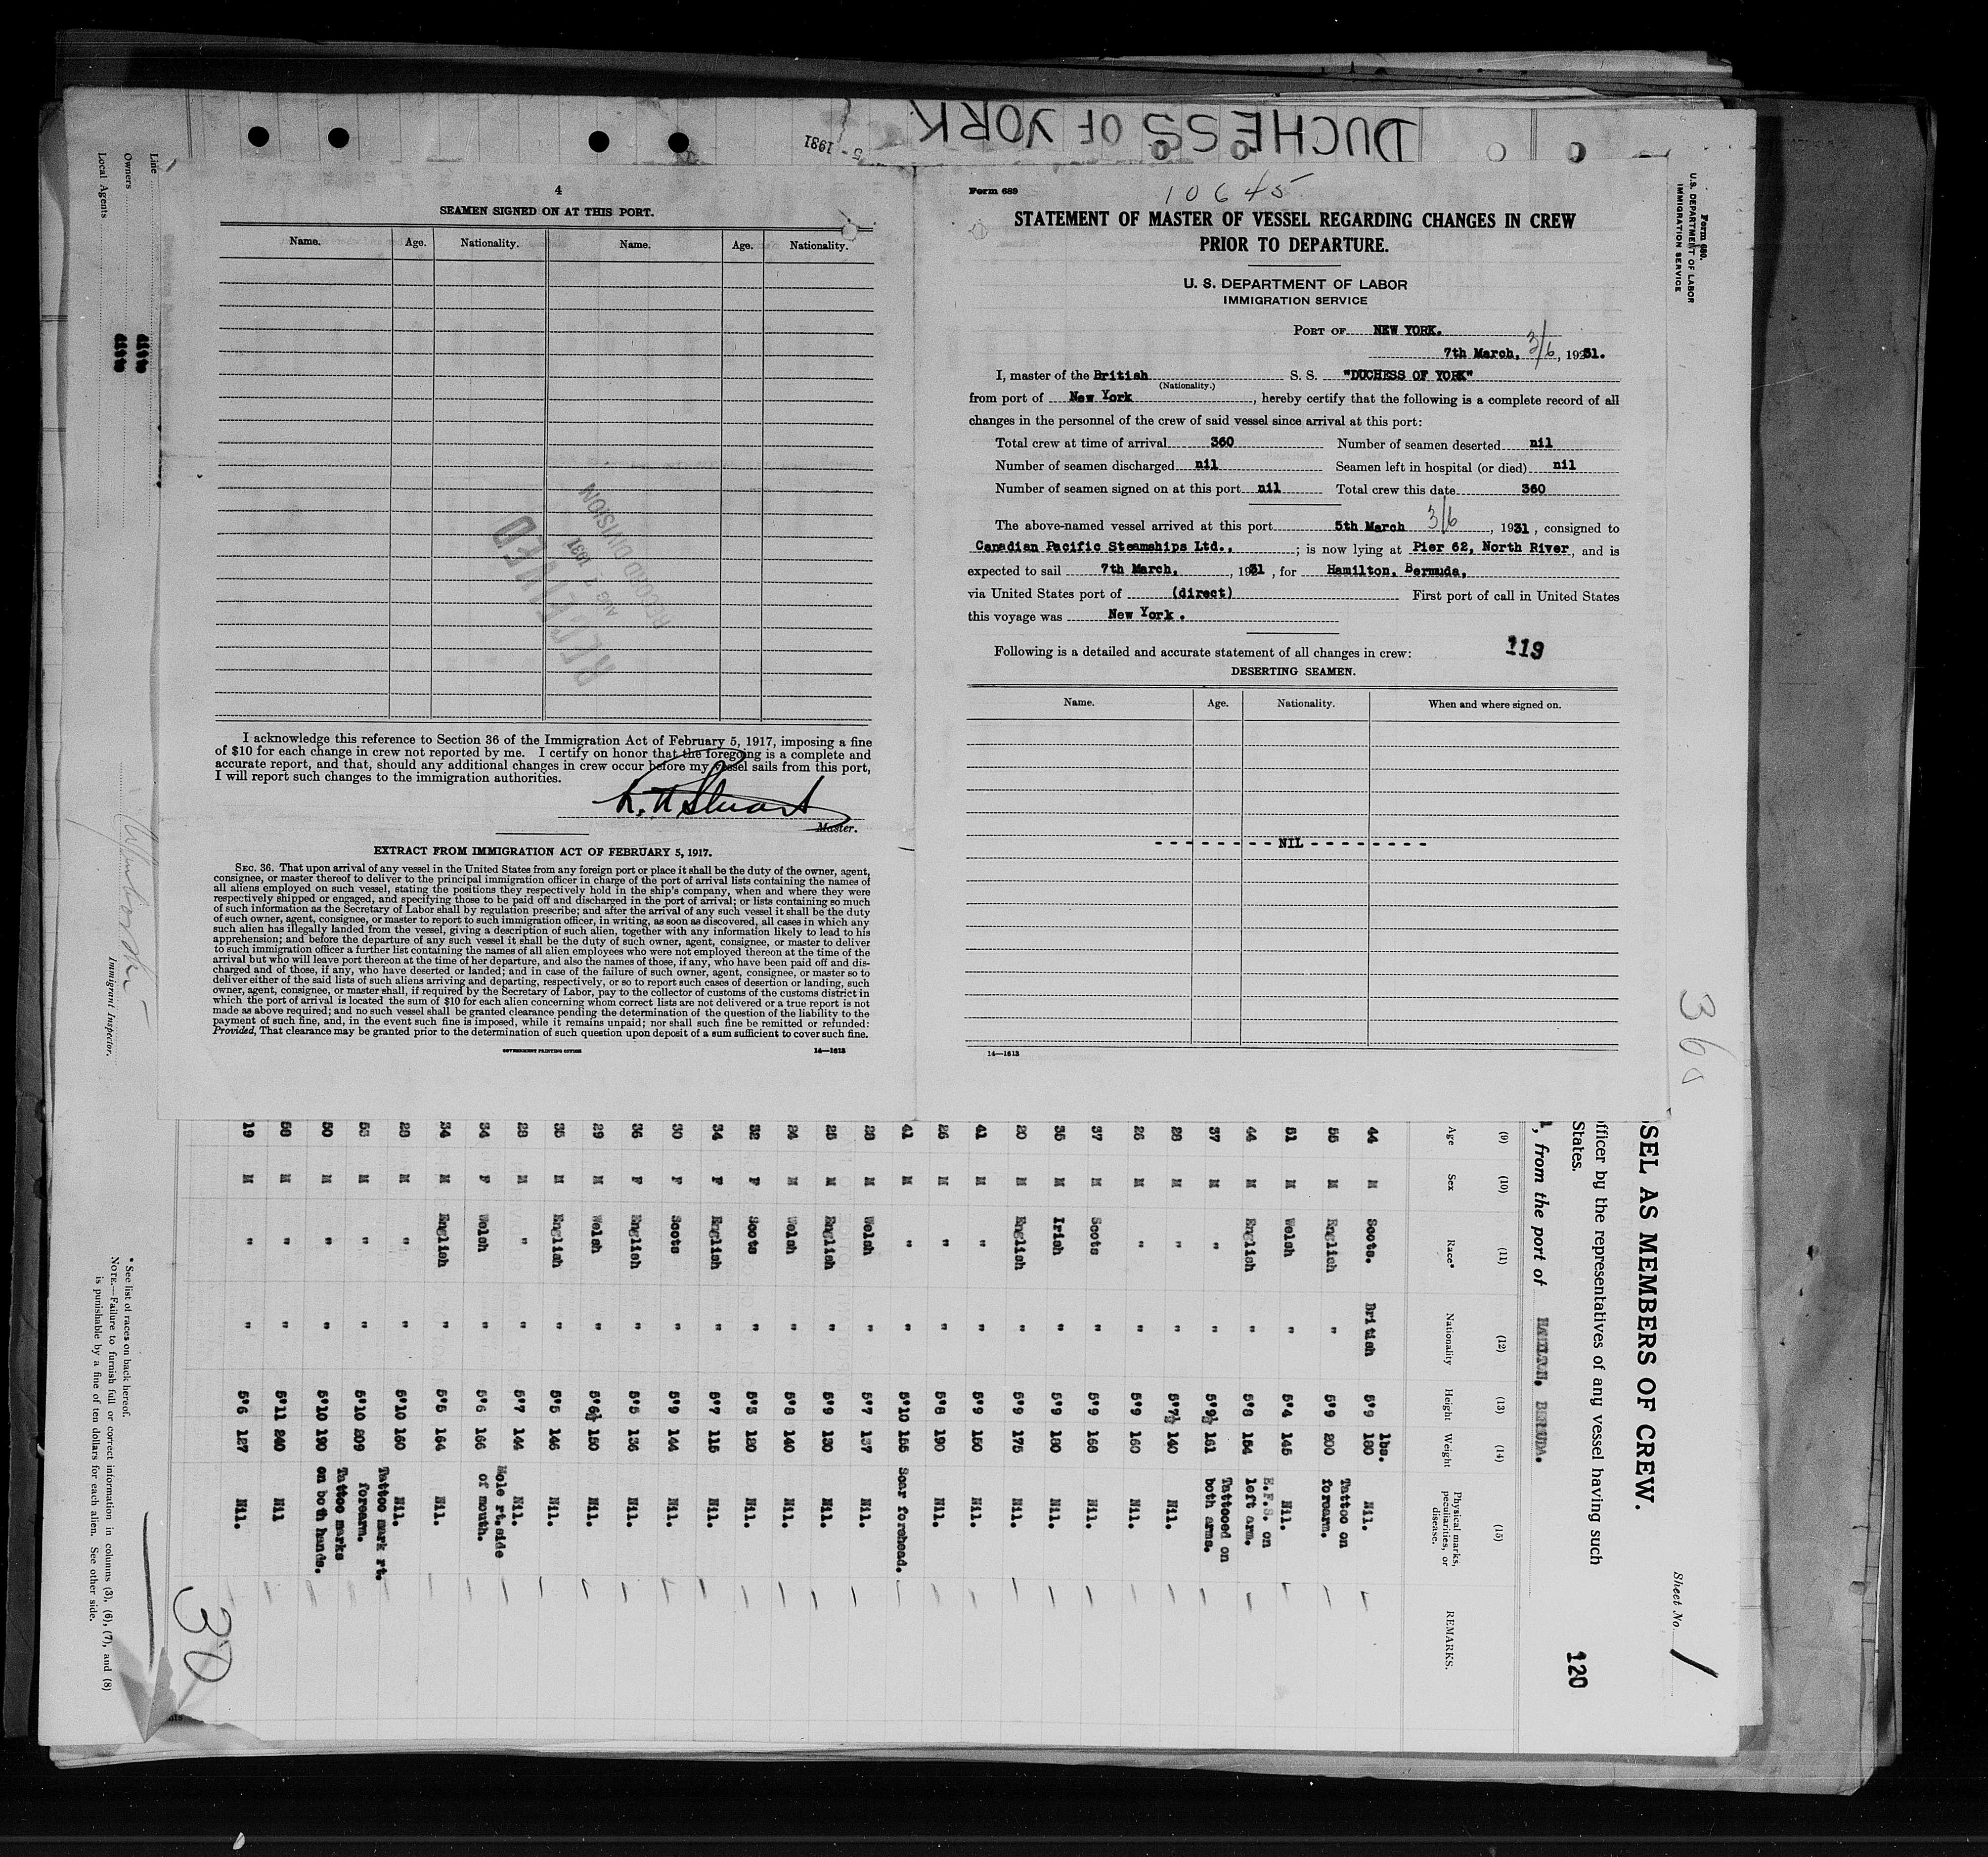 DUCHESS OF YORK
5- 1931
4
SEAMEN SIGNED ON AT THIS PORT.
Name. Age. Nationality. Name. Age. Nationality.
RECEIVED
AUG 7 1931
RECORD DIVISION
I acknowledge this reference to Section 36 of the Immigration Act of February 5, 1917, imposing a fine
of $10 for each change in crew not reported by me. I certify on honor that the foregoing is a complete and
accurate report, and that, should any additional changes in crew occur before my vessel sails from this port,
I will report such changes to the immigration authorities.
Stuart
Master.
EXTRACT FROM IMMIGRATION ACT OF FEBRUARY 5, 1917.
SEC. 36. That upon arrival of any vessel in the United States from any foreign port or place it shall be the duty of the owner, agent,
consignee, or master thereof to deliver to the principal immigration officer in charge of the port of arrival lists containing the names of
all aliens employed on such vessel, stating the positions they respectively hold in the ship's company, when and where they were
respectively shipped or engaged, and specifying those to be paid off and discharged in the port of arrival; or lists containing so much
of such information as the Secretary of Labor shall by regulation prescribe; and after the arrival of any such vessel it shall be the duty
of such owner, agent, consignee, or master to report to such immigration officer, in writing, as soon as discovered, all cases in which any
such alien has illegally landed from the vessel, giving a description of such alien, together with any information likely to lead to his
apprehension; and before the departure of any such vessel it shall be the duty of such owner, agent, consignee, or master to deliver
to such immigration officer a further list containing the names of all alien employees who were not employed thereon at the time of the
arrival but who will leave port thereon at the time of her departure, and also the names of those, if any, who have been paid off and dis-
charged and of those, if any, who have deserted or landed; and in case of the failure of such owner, agent, consignee, or master so to
deliver either of the said lists of such aliens arriving and departing, respectively, or so to report such cases of desertion or landing, such
owner, agent, consignee, or master shall, if required by the Secretary of Labor, pay to the collector of customs of the customs district in
which the port of arrival is located the sum of $10 for each alien concerning whom correct lists are not delivered or a true report is not
made as above required; and no such vessel shall be granted clearance pending the determination of the question of the liability to the
payment of such fine, and, in the event such fine is imposed, while it remains unpaid; nor shall such fine be remitted or refunded:
Provided, That clearance may be granted prior to the determination of such question upon deposit of a sum sufficient to cover such fine.
GOVERNMENT PRINTING OFFICE 14—1613
Form 689
10645
STATEMENT OF MASTER OF VESSEL REGARDING CHANGES IN CREW
PRIOR TO DEPARTURE.
U. S. DEPARTMENT OF LABOR
IMMIGRATION SERVICE
PORT OF NEW YORK.
7th March, 3/6, 1931.
I, master of the British S. S. "DUCHESS OF YORK"
(Nationality.)
from port of New York, hereby certify that the following is a complete record of all
changes in the personnel of the crew of said vessel since arrival at this port:
Total crew at time of arrival 360 Number of seamen deserted nil
Number of seamen discharged nil Seamen left in hospital (or died) nil
Number of seamen signed on at this port nil Total crew this date 360
The above-named vessel arrived at this port 5th March 3/6, 1931, consigned to
Canadian Pacific Steamships Ltd., ; is now lying at Pier 62, North River, and is
expected to sail 7th March, 1931, for Hamilton, Bermuda,
via United States port of (direct) First port of call in United States
this voyage was New York.
Following is a detailed and accurate statement of all changes in crew:
119
DESERTING SEAMEN.
Name. Age. Nationality. When and where signed on.
- - - - - - - - NIL - - - - - - - -
14—1613
Form 680.
U. S. DEPARTMENT OF LABOR
IMMIGRATION SERVICE
360
Sheet No. 1
SEL AS MEMBERS OF CREW.
120
officer by the representatives of any vessel having such
States.
, from the port of HAMILTON, BERMUDA.
(9) (10) (11) (12) (13) (14) (15)
Age Sex Race* Nationality Height Weight Physical marks, peculiarities, or disease. REMARKS.
lbs.
44 M Scots. British 5'9 180 Nil.
55 M English " 5'9 200 Tattoo on forearm.
51 M Welsh " 5'4 145 Nil.
44 M English " 5'8 154 E.F.S. on left arm.
37 M " " 5'9½ 161 Tattooed on both arms.
28 M " " 5'7½ 140 Nil.
26 M " " 5'9 160 Nil.
37 M Scots " 5'9 168 Nil.
35 M Irish " 5'9 180 Nil.
20 M English " 5'9 175 Nil.
41 M " " 5'9 150 Nil.
26 M " " 5'8 190 Nil.
41 M " " 5'10 155 Scar forehead.
28 M Welsh " 5'7 137 Nil.
25 M English " 5'9 130 Nil.
24 M Welsh " 5'8 140 Nil.
32 F Scots " 5'3 120 Nil.
34 F English " 5'7 115 Nil.
30 F Scots " 5'9 144 Nil.
36 F English " 5'5 136 Nil.
29 M Welsh " 5'6½ 150 Nil.
35 M English " 5'5 146 Nil.
28 M " " 5'7 144 Nil.
34 F Welsh " 5'5 166 Mole rt. side of mouth.
34 M English " 5'5 164 Nil.
28 M " " 5'10 160 Nil.
53 M " " 5'10 209 Tattoo mark rt. forearm.
50 M " " 5'10 190 Tattoo marks on both hands.
58 M " " 5'11 240 Nil
19 M " " 5'6 127 Nil.
30
Line ditto
Owners ditto
Local Agents
Immigrant Inspector.
* See list of races on back hereof.
NOTE.—Failure to furnish full or correct information in columns (3), (6), (7), and (8)
is punishable by a fine of ten dollars for each alien. See other side.